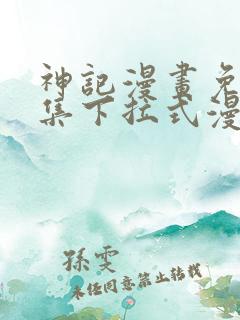 神記漫畫免
集下拉式漫
孫雯
未經同意禁止轉載